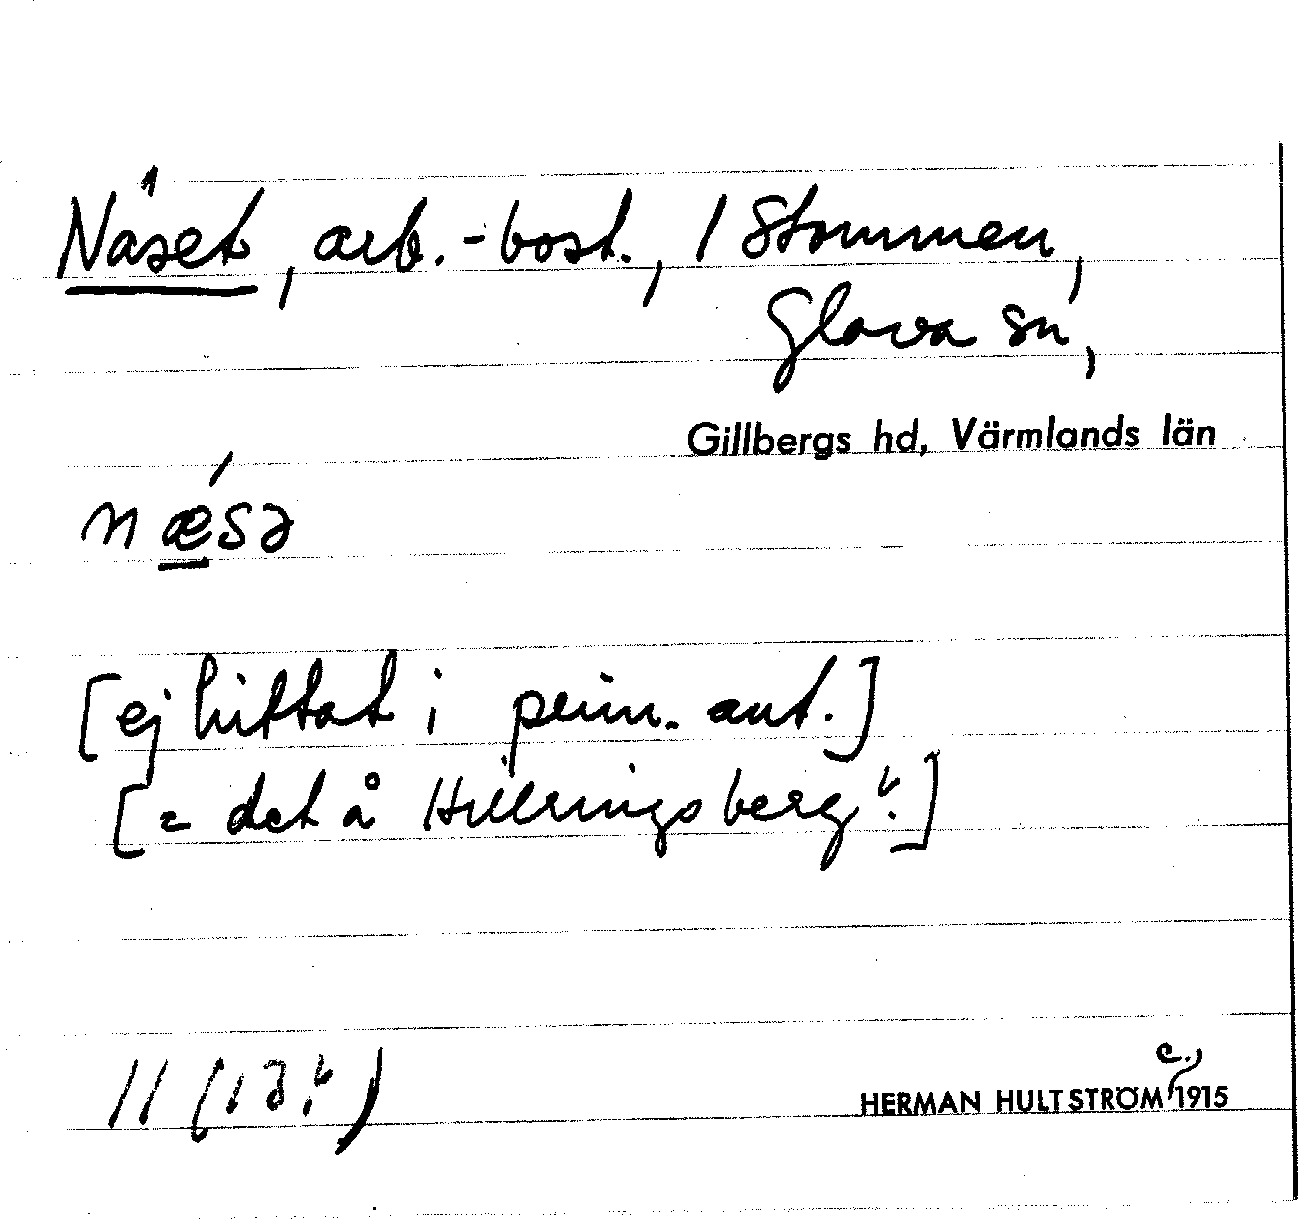 Näset, arb.-bost., / Stommen,
Glava sn,
Gillbergs hd, Värmlands län
næ´sə
[ej hittat i prim. ant.]
[= det å Hillringsberg?]
11 (13?)
HERMAN HULTSTRÖM c., 1915